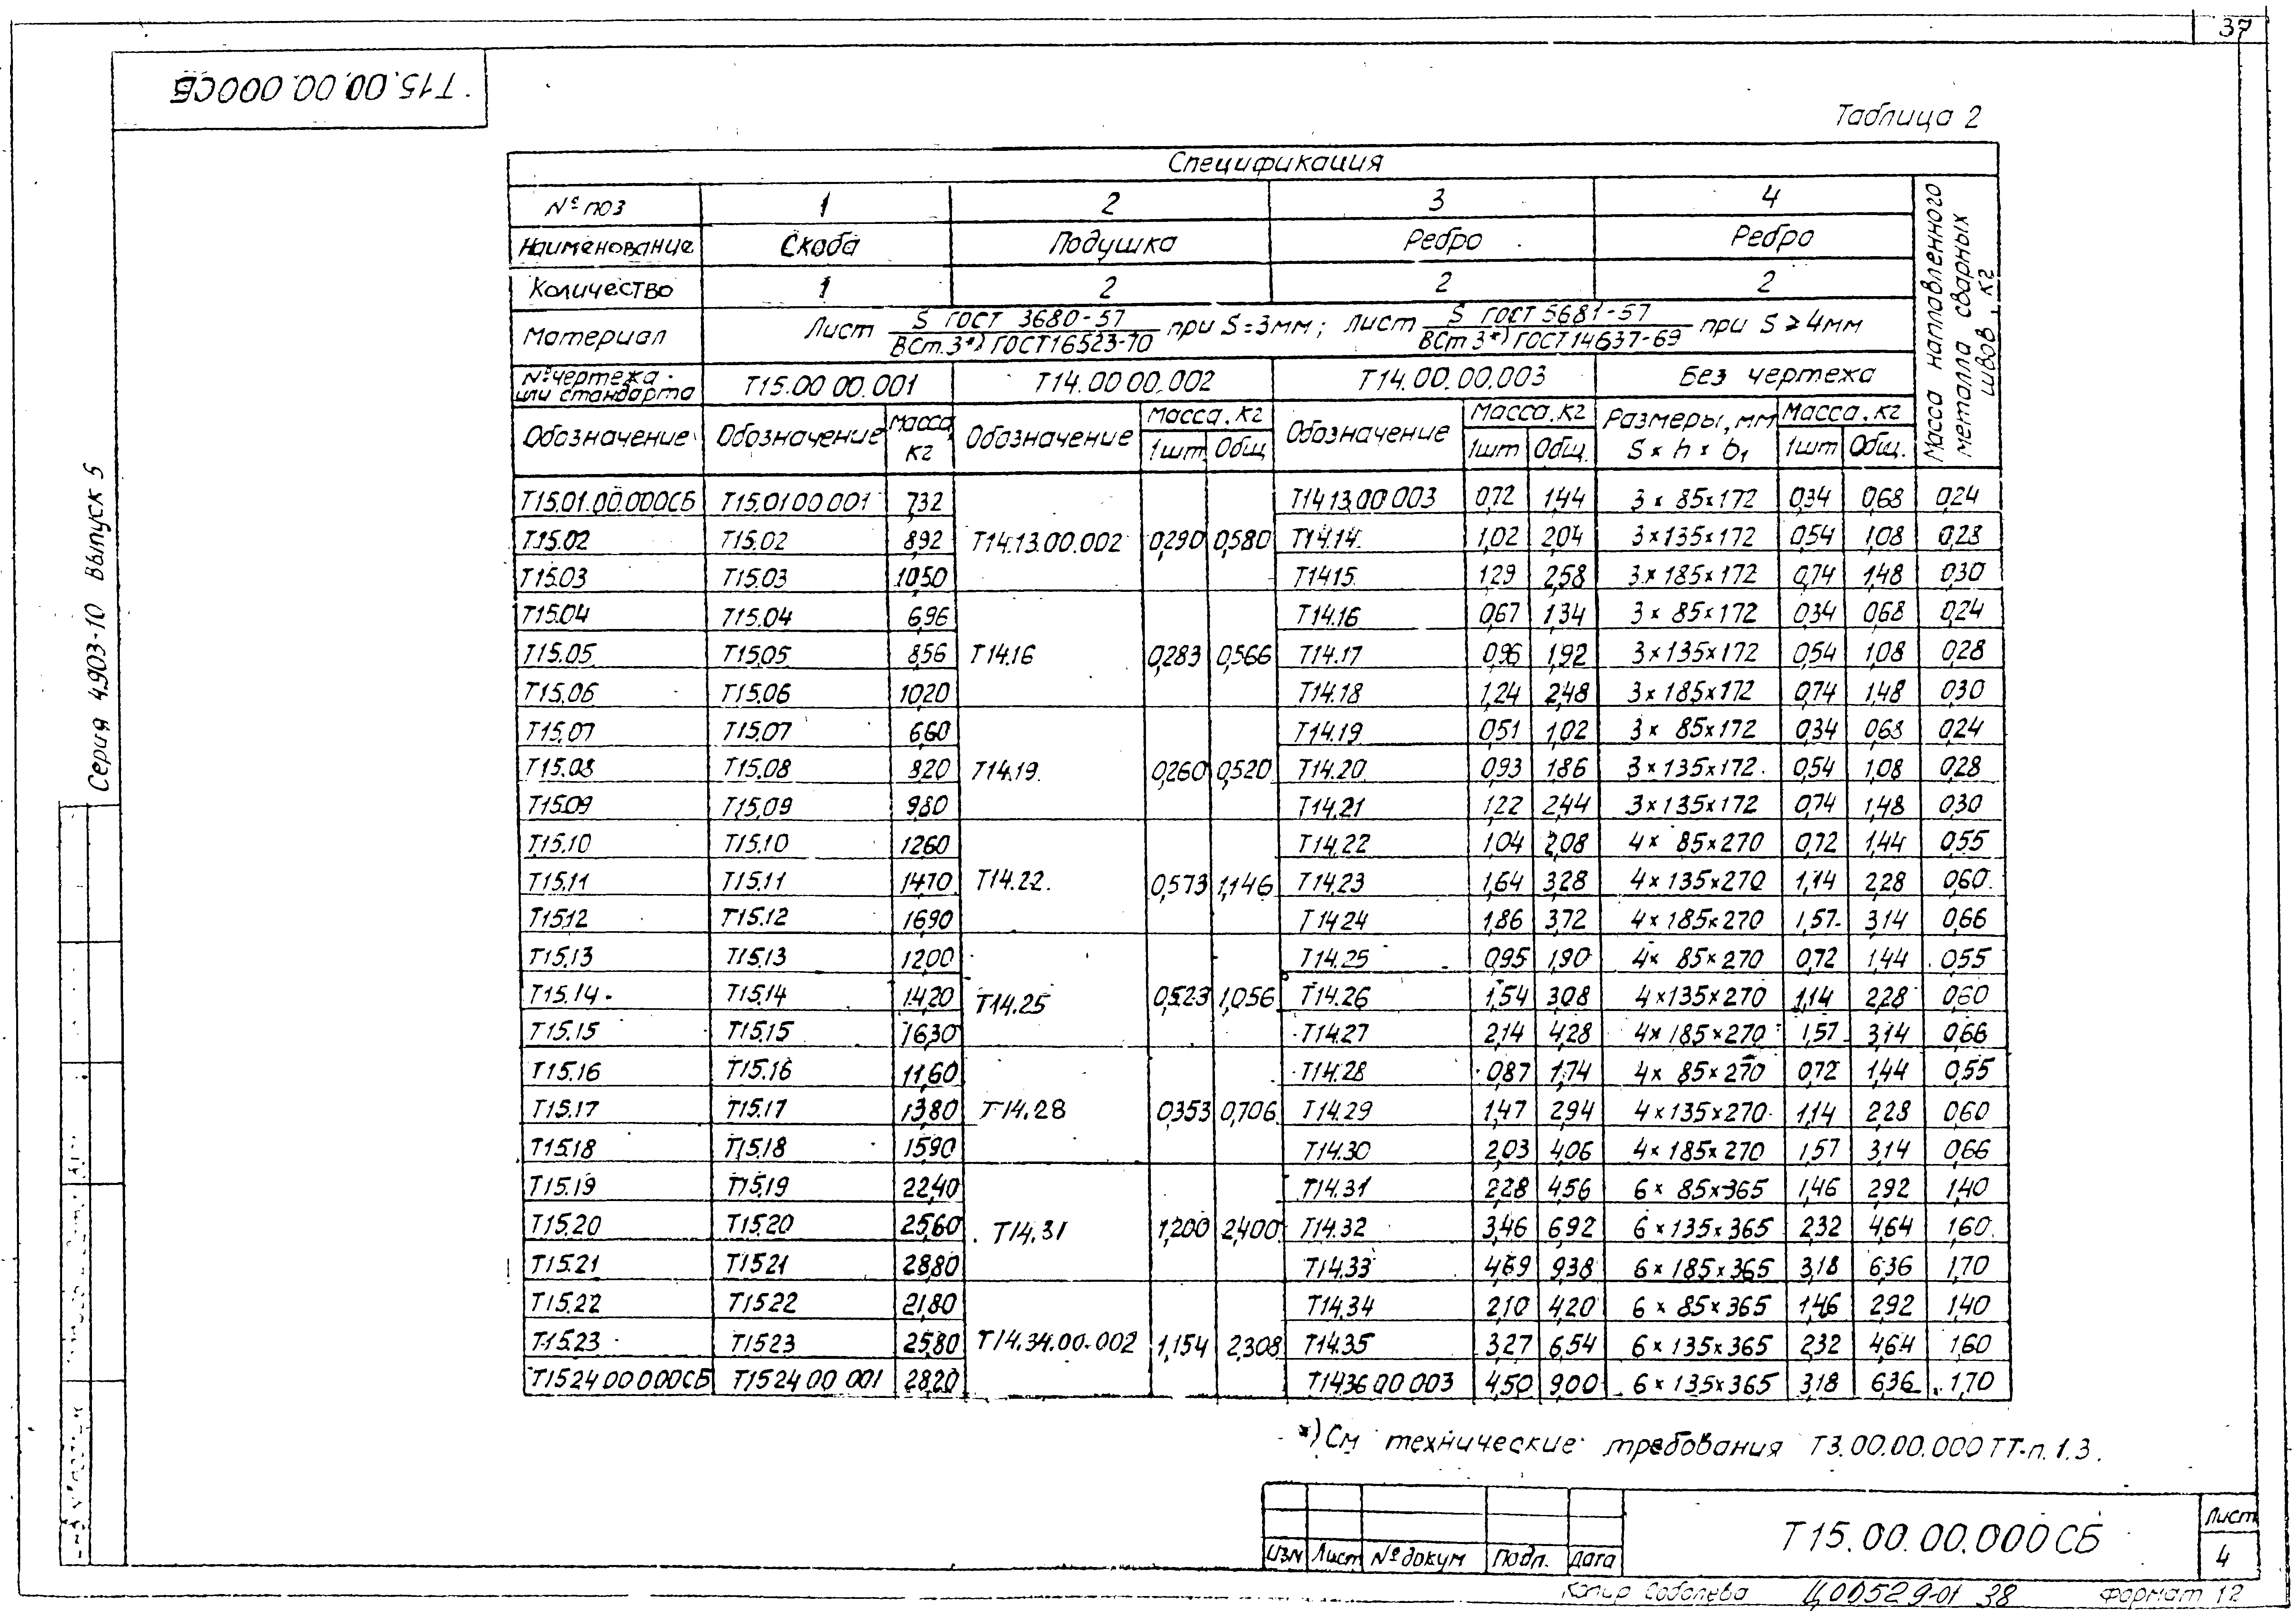 37
Т15.00.00.000СБ
Таблица 2
Серия 4.903-10 Выпуск 5
Спецификация
№ поз 1 2 3 4 Масса наплавленного металла сварных швов, кг
Наименование Скоба Подушка Ребро Ребро
Количество 1 2 2 2
Материал Лист S ГОСТ 3680-57 / ВСт.3*) ГОСТ16523-70 при S=3мм; Лист S ГОСТ 5681-57 / ВСт 3*) ГОСТ14637-69 при S ≥ 4мм
№ чертежа или стандарта Т15.00 00.001 Т14.00 00.002 Т14.00.00.003 Без чертежа
Обозначение Обозначение Масса кг Обозначение Масса.кг 1шт Общ Обозначение Масса.кг 1шт Общ. Размеры, мм S × h × b₁ Масса.кг 1шт Общ.
Т15.01.00.000СБ Т15.01 00 001 7,32 Т14 13.00 003 0,72 1,44 3 × 85×172 0,34 0,68 0,24
Т.15.02 Т15.02 8,92 Т14.13.00.002 0,290 0,580 Т14.14. 1,02 2,04 3×135×172 0,54 1,08 0,28
Т15.03 Т15.03 10,50 Т14 15. 1,29 2,58 3×185×172 0,74 1,48 0,30
Т15.04 Т15.04 6,96 Т14.16 0,67 1,34 3× 85×172 0,34 0,68 0,24
Т15.05 Т15.05 8,56 Т14.16 0,283 0,566 Т14.17 0,96 1,92 3×135×172 0,54 1,08 0,28
Т15.06 Т15.06 10,20 Т14.18 1,24 2,48 3×185×172 0,74 1,48 0,30
Т15.07 Т15.07 6,60 Т14.19 0,51 1,02 3× 85×172 0,34 0,68 0,24
Т15.08 Т15.08 8,20 Т14.19. 0,260 0,520 Т14.20 0,93 1,86 3×135×172 0,54 1,08 0,28
Т15.09 Т15.09 9,80 Т14.21 1,22 2,44 3×135×172 0,74 1,48 0,30
Т15.10 Т15.10 12,60 Т14.22 1,04 2,08 4× 85×270 0,72 1,44 0,55
Т15.11 Т15.11 14,70 Т14.22. 0,573 1,146 Т14.23 1,64 3,28 4×135×270 1,14 2,28 0,60
Т15.12 Т15.12 16,90 Т14.24 1,86 3,72 4×185×270 1,57 3,14 0,66
Т15.13 Т15.13 12,00 Т14.25 0,95 1,90 4× 85×270 0,72 1,44 0,55
Т15.14 Т15.14 14,20 Т14.25 0,523 1,056 Т14.26 1,54 3,08 4×135×270 1,14 2,28 0,60
Т15.15 Т15.15 16,30 Т14.27 2,14 4,28 4×185×270 1,57 3,14 0,66
Т15.16 Т15.16 11,60 Т14.28 0,87 1,74 4× 85×270 0,72 1,44 0,55
Т15.17 Т15.17 13,80 Т14.28 0,353 0,706 Т14.29 1,47 2,94 4×135×270 1,14 2,28 0,60
Т15.18 Т15.18 15,90 Т14.30 2,03 4,06 4×185×270 1,57 3,14 0,66
Т15.19 Т15.19 22,40 Т14.31 2,28 4,56 6× 85×365 1,46 2,92 1,40
Т15.20 Т15.20 25,60 Т14.31 1,200 2,400 Т14.32 3,46 6,92 6×135×365 2,32 4,64 1,60
Т15.21 Т15 21 28,80 Т14.33 4,69 9,38 6×185×365 3,18 6,36 1,70
Т15.22 Т15 22 21,80 Т14.34 2,10 4,20 6 × 85×365 1,46 2,92 1,40
Т15.23 Т15 23 25,80 Т14.34.00.002 1,154 2,308 Т14.35 3,27 6,54 6×135×365 2,32 4,64 1,60
Т15 24 00 000СБ Т15 24 00 001 28,20 Т14.36 00 003 4,50 9,00 6×135×365 3,18 6,36 1,70
*) См технические требования Т3.00.00.000ТТ п.1.3.
Изм Лист № докум Подп. Дата
Т15.00.00.000СБ
Лист
4
Копир Соболева Ц00529-01 38 Формат 12